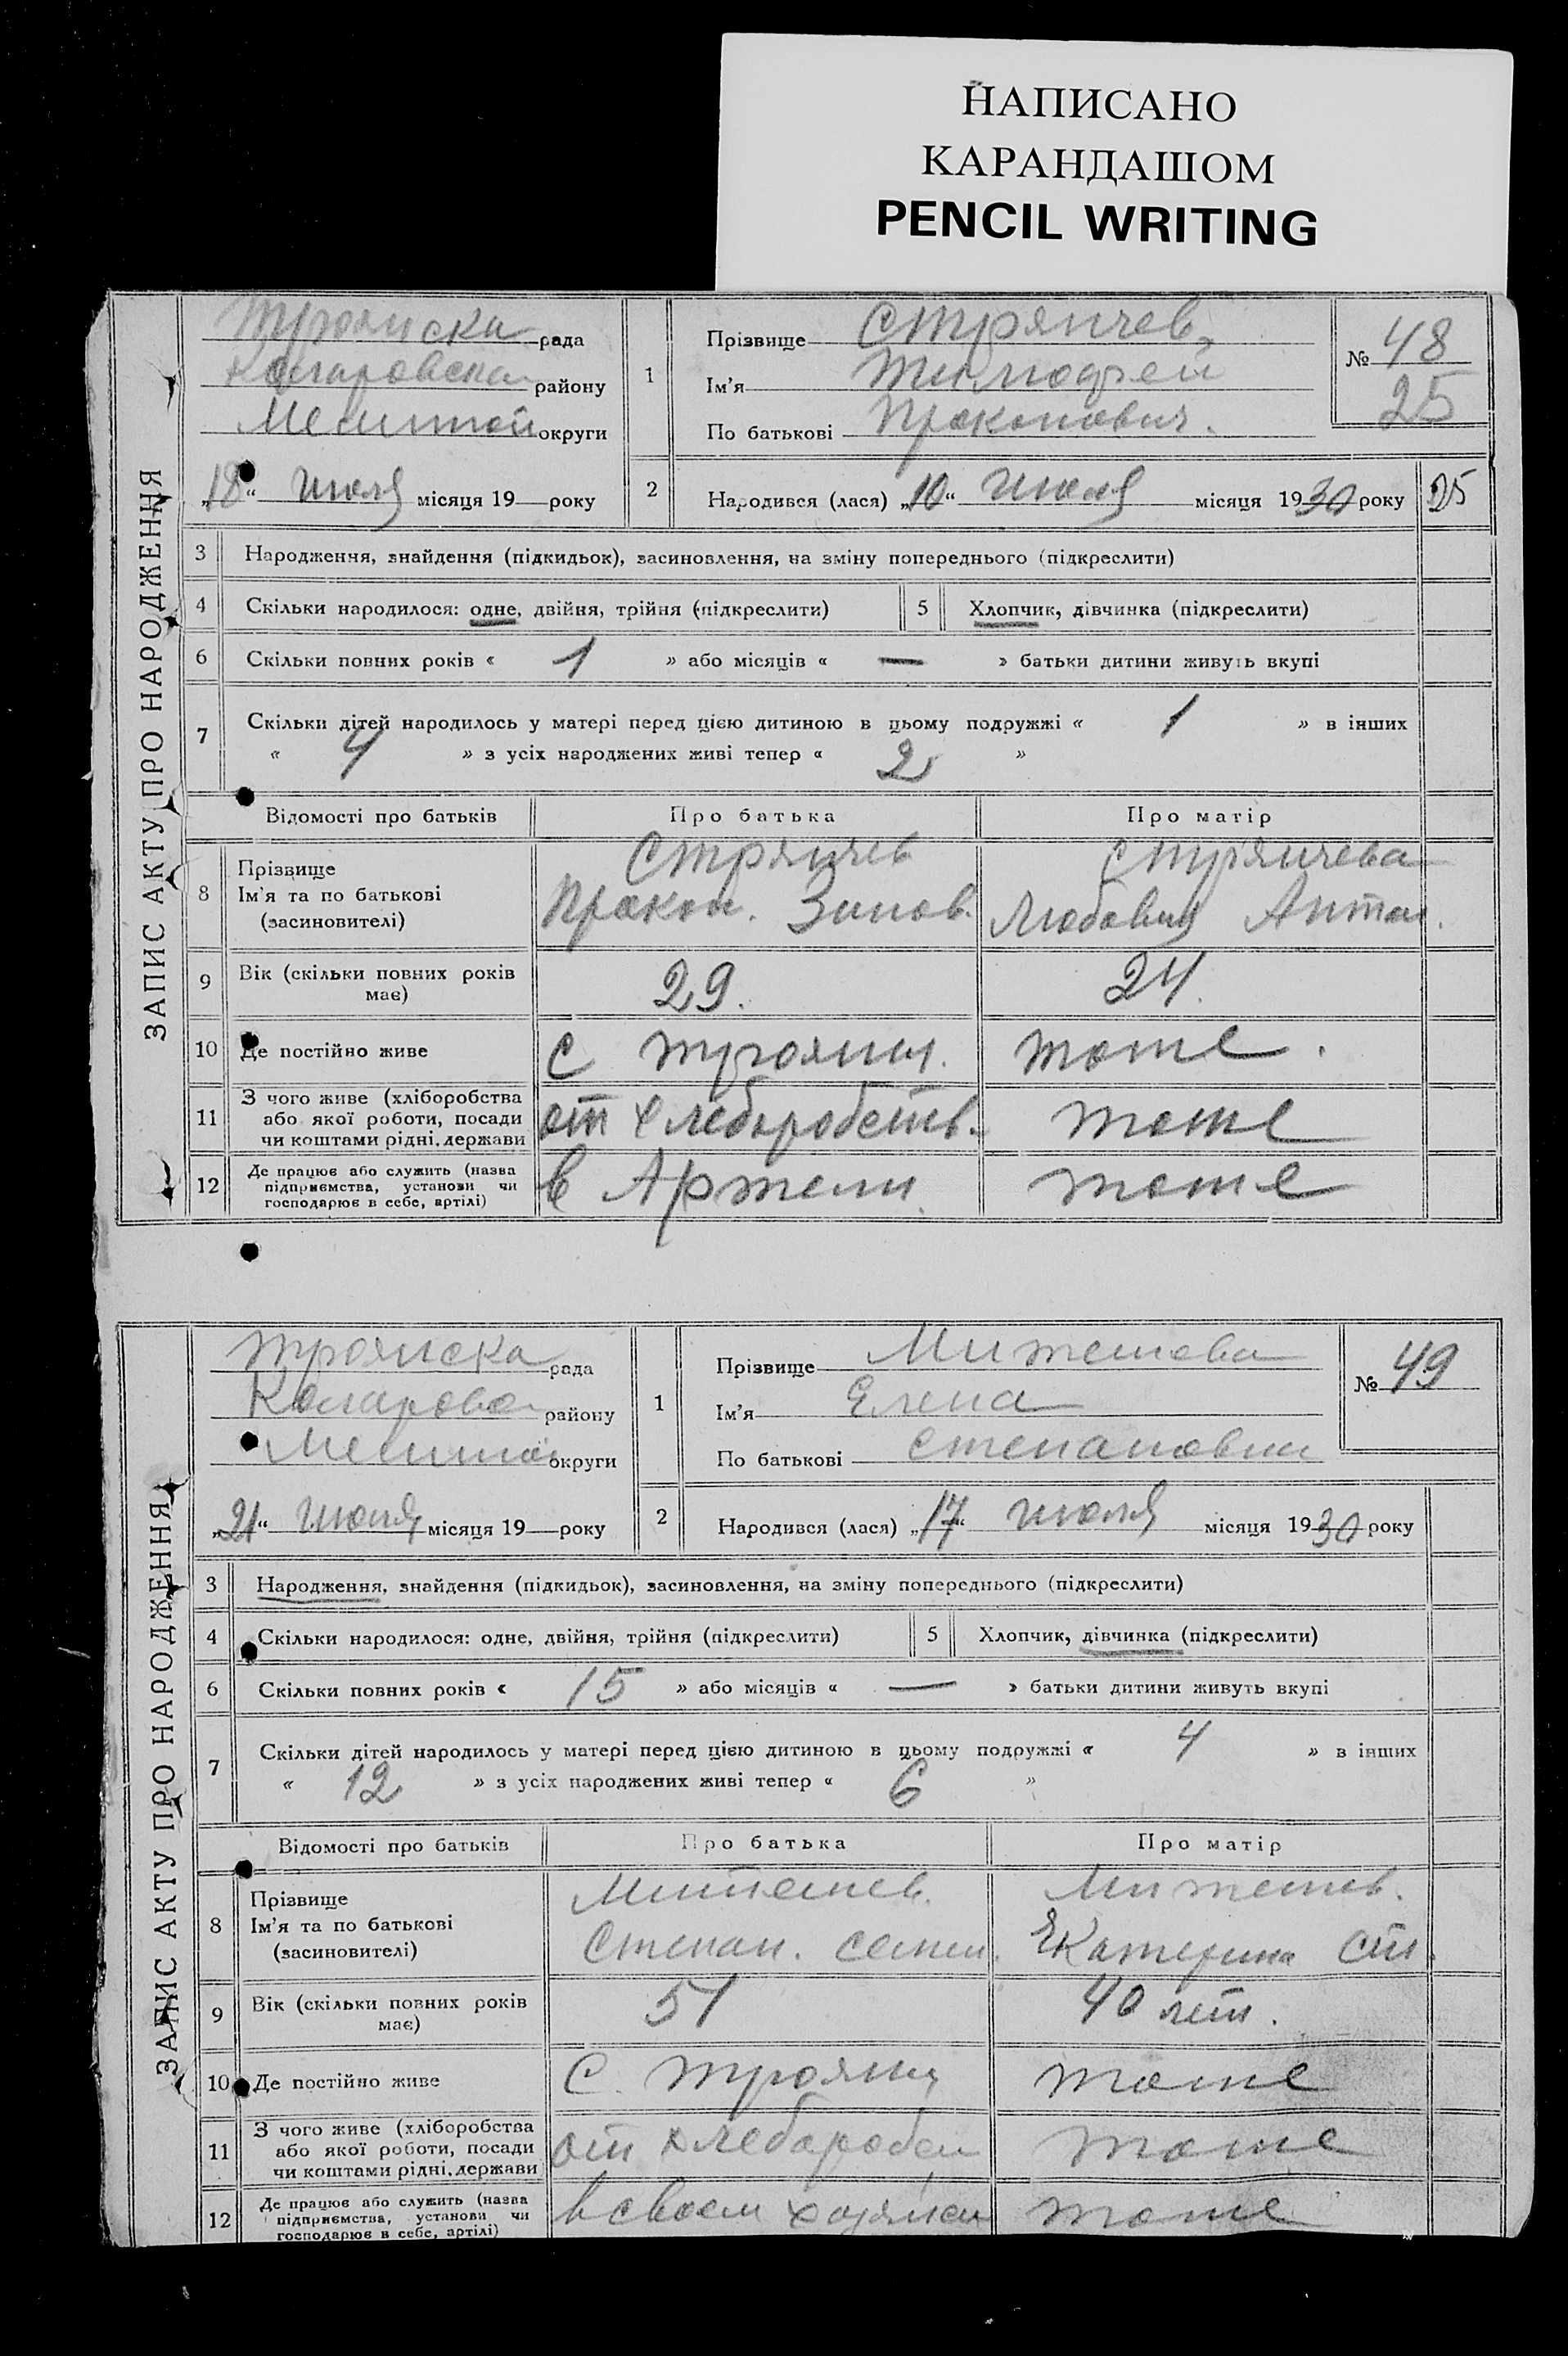 НАПИСАНО
КАРАНДАШОМ
PENCIL WRITING
ЗАПИС АКТУ ПРО НАРОДЖЕННЯ
Трояиска рада
району
округи
„18“ июля місяця 19 — року
1 Прізвище Стрянчев
Ім'я Тимофей
По батькові Прокопович.
№ 48
25
2 Народився (лася) „10“ июля місяця 1930 року 25
3 Народження, знайдення (підкидьок), засиновлення, на зміну попереднього (підкреслити)
4 Скільки народилося: одне, двійня, трійня (підкреслити) 5 Хлопчик, дівчинка (підкреслити)
6 Скільки повних років « 1 » або місяців « — » батьки дитини живуть вкупі
7 Скільки дітей народилось у матері перед цією дитиною в цьому подружжі « 1 » в інших
« 4 » з усіх народжених живі тепер « 2 »
Відомості про батьків Про батька Про матір
8 Прізвище Стрянчев Стрянчева
Ім'я та по батькові Прокоп. Зинов. Любовия Антон.
(засиновителі)
9 Вік (скільки повних років має) 29. 24.
10 Де постійно живе с Трояны. тоже.
11 З чого живе (хліборобства
або якої роботи, посади
чи коштами рідні, держави от хлеборобств. тоже
12 Де працює або служить (назва
підприємства, установи чи
господарює в себе, артілі) в Артели тоже
ЗАПИС АКТУ ПРО НАРОДЖЕННЯ
Трояиска рада
Коларово району
округи
„21“ июля місяця 19 — року
1 Прізвище Митешова
Ім'я Елена
По батькові Степановна
№ 49
2 Народився (лася) „17“ июля місяця 1930 року
3 Народження, знайдення (підкидьок), засиновлення, на зміну попереднього (підкреслити)
4 Скільки народилося: одне, двійня, трійня (підкреслити) 5 Хлопчик, дівчинка (підкреслити)
6 Скільки повних років « 15 » або місяців « — » батьки дитини живуть вкупі
7 Скільки дітей народилось у матері перед цією дитиною в цьому подружжі « 4 » в інших
« 12 » з усіх народжених живі тепер « 6 »
Відомості про батьків Про батька Про матір
8 Прізвище
Ім'я та по батькові Степан. Семен. Екатерина Ст.
(засиновителі)
9 Вік (скільки повних років має) 51 40 лет.
10 Де постійно живе С. Трояны тоже
11 З чого живе (хліборобства
або якої роботи, посади
чи коштами рідні, держави от хлебороб тоже
12 Де працює або служить (назва
підприємства, установи чи
господарює в себе, артілі) в своем тоже